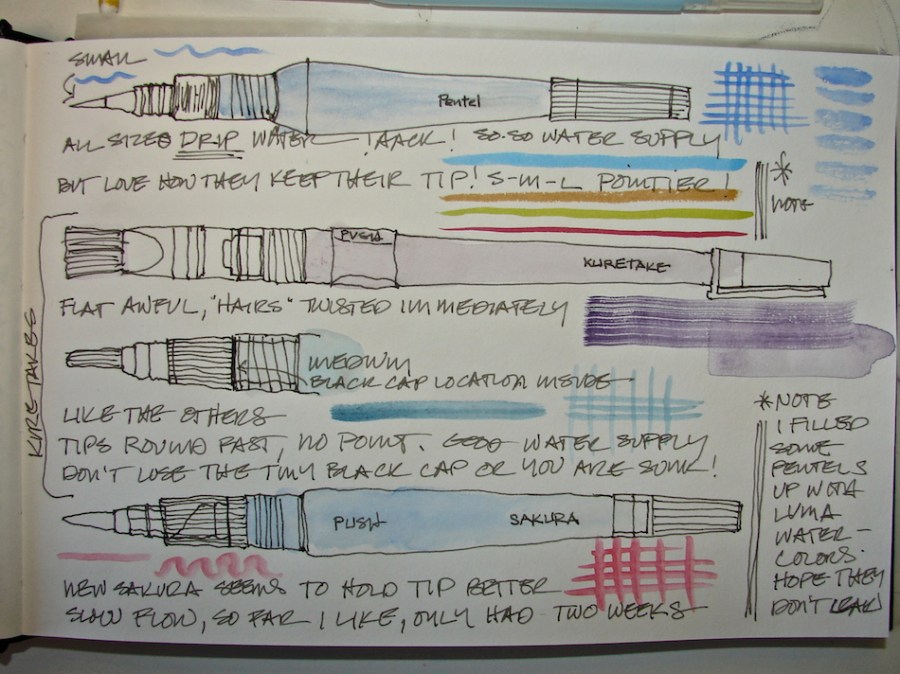 SMALL
Pentel
ALL SIZES DRIP WATER !AACK! SO-SO WATER SUPPLY
BUT LOVE HOW THEY KEEP THEIR TIP! S-M-L POINTIER!
*
NOTE
KURETAKES
PUSH
KURETAKE
FLAT AWFUL, "HAIRS" TWISTED IMMEDIATELY
MEDIUM
BLACK CAP LOCATION INSIDE
LIKE THE OTHERS
TIPS ROUND FAST, NO POINT. GOOD WATER SUPPLY
DON'T LOSE THE TINY BLACK CAP OR YOU ARE SUNK!
PUSH
SAKURA
NEW SAKURA SEEMS TO HOLD TIP BETTER
SLOW FLOW, SO FAR I LIKE, ONLY HAD TWO WEEKS
*NOTE
I FILLED
SOME
PENTELS
UP WITH
LUMA
WATER-
COLORS.
HOPE THEY
DON'T LEAK!